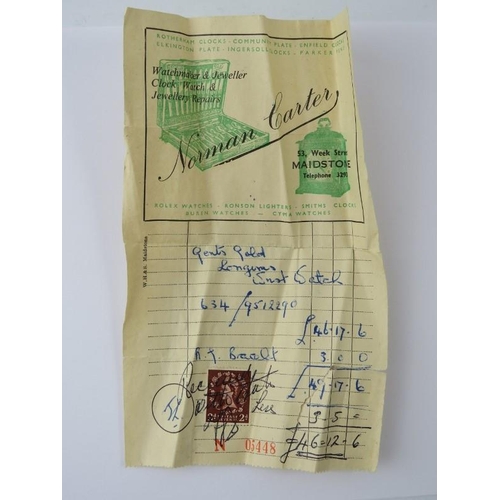 ROTHERHAM CLOCKS - COMMUNITY PLATE - ENFIELD CLOCKS
ELKINGTON PLATE - INGERSOLL CLOCKS - PARKER PENS
Watchmaker & Jeweller
Clock Watch &
Jewellery Repairs
Norman Carter
53, Week Stre
MAIDSTONE
Telephone 329
ROLEX WATCHES - RONSON LIGHTERS - SMITHS CLOCKS
RUSIN WATCHES - CYMA WATCHES
W.H.&S. Maidstone
Gents Gold
Longines
Wrist Watch
634/9512290
£46-17-6
3 0 0
£49-17-6
3-5-
£46-12-6
Less
N 05448